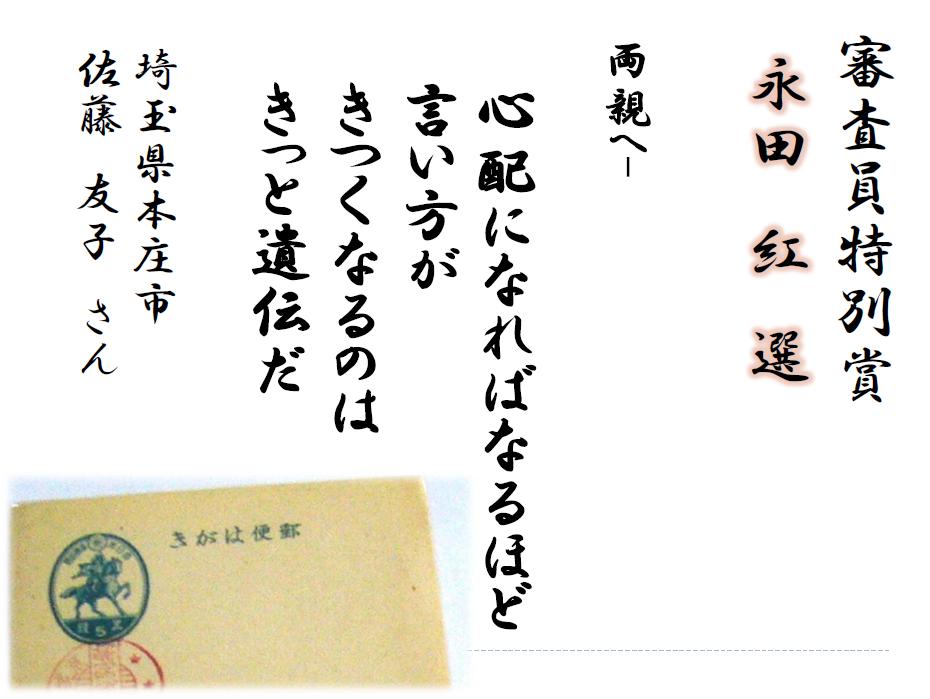 審査員特別賞
永田 紅 選
両親へ―
心配になればなるほど
言い方が
きつくなるのは
きっと遺伝だ
埼玉県本庄市
佐藤 友子 さん
きがは便郵